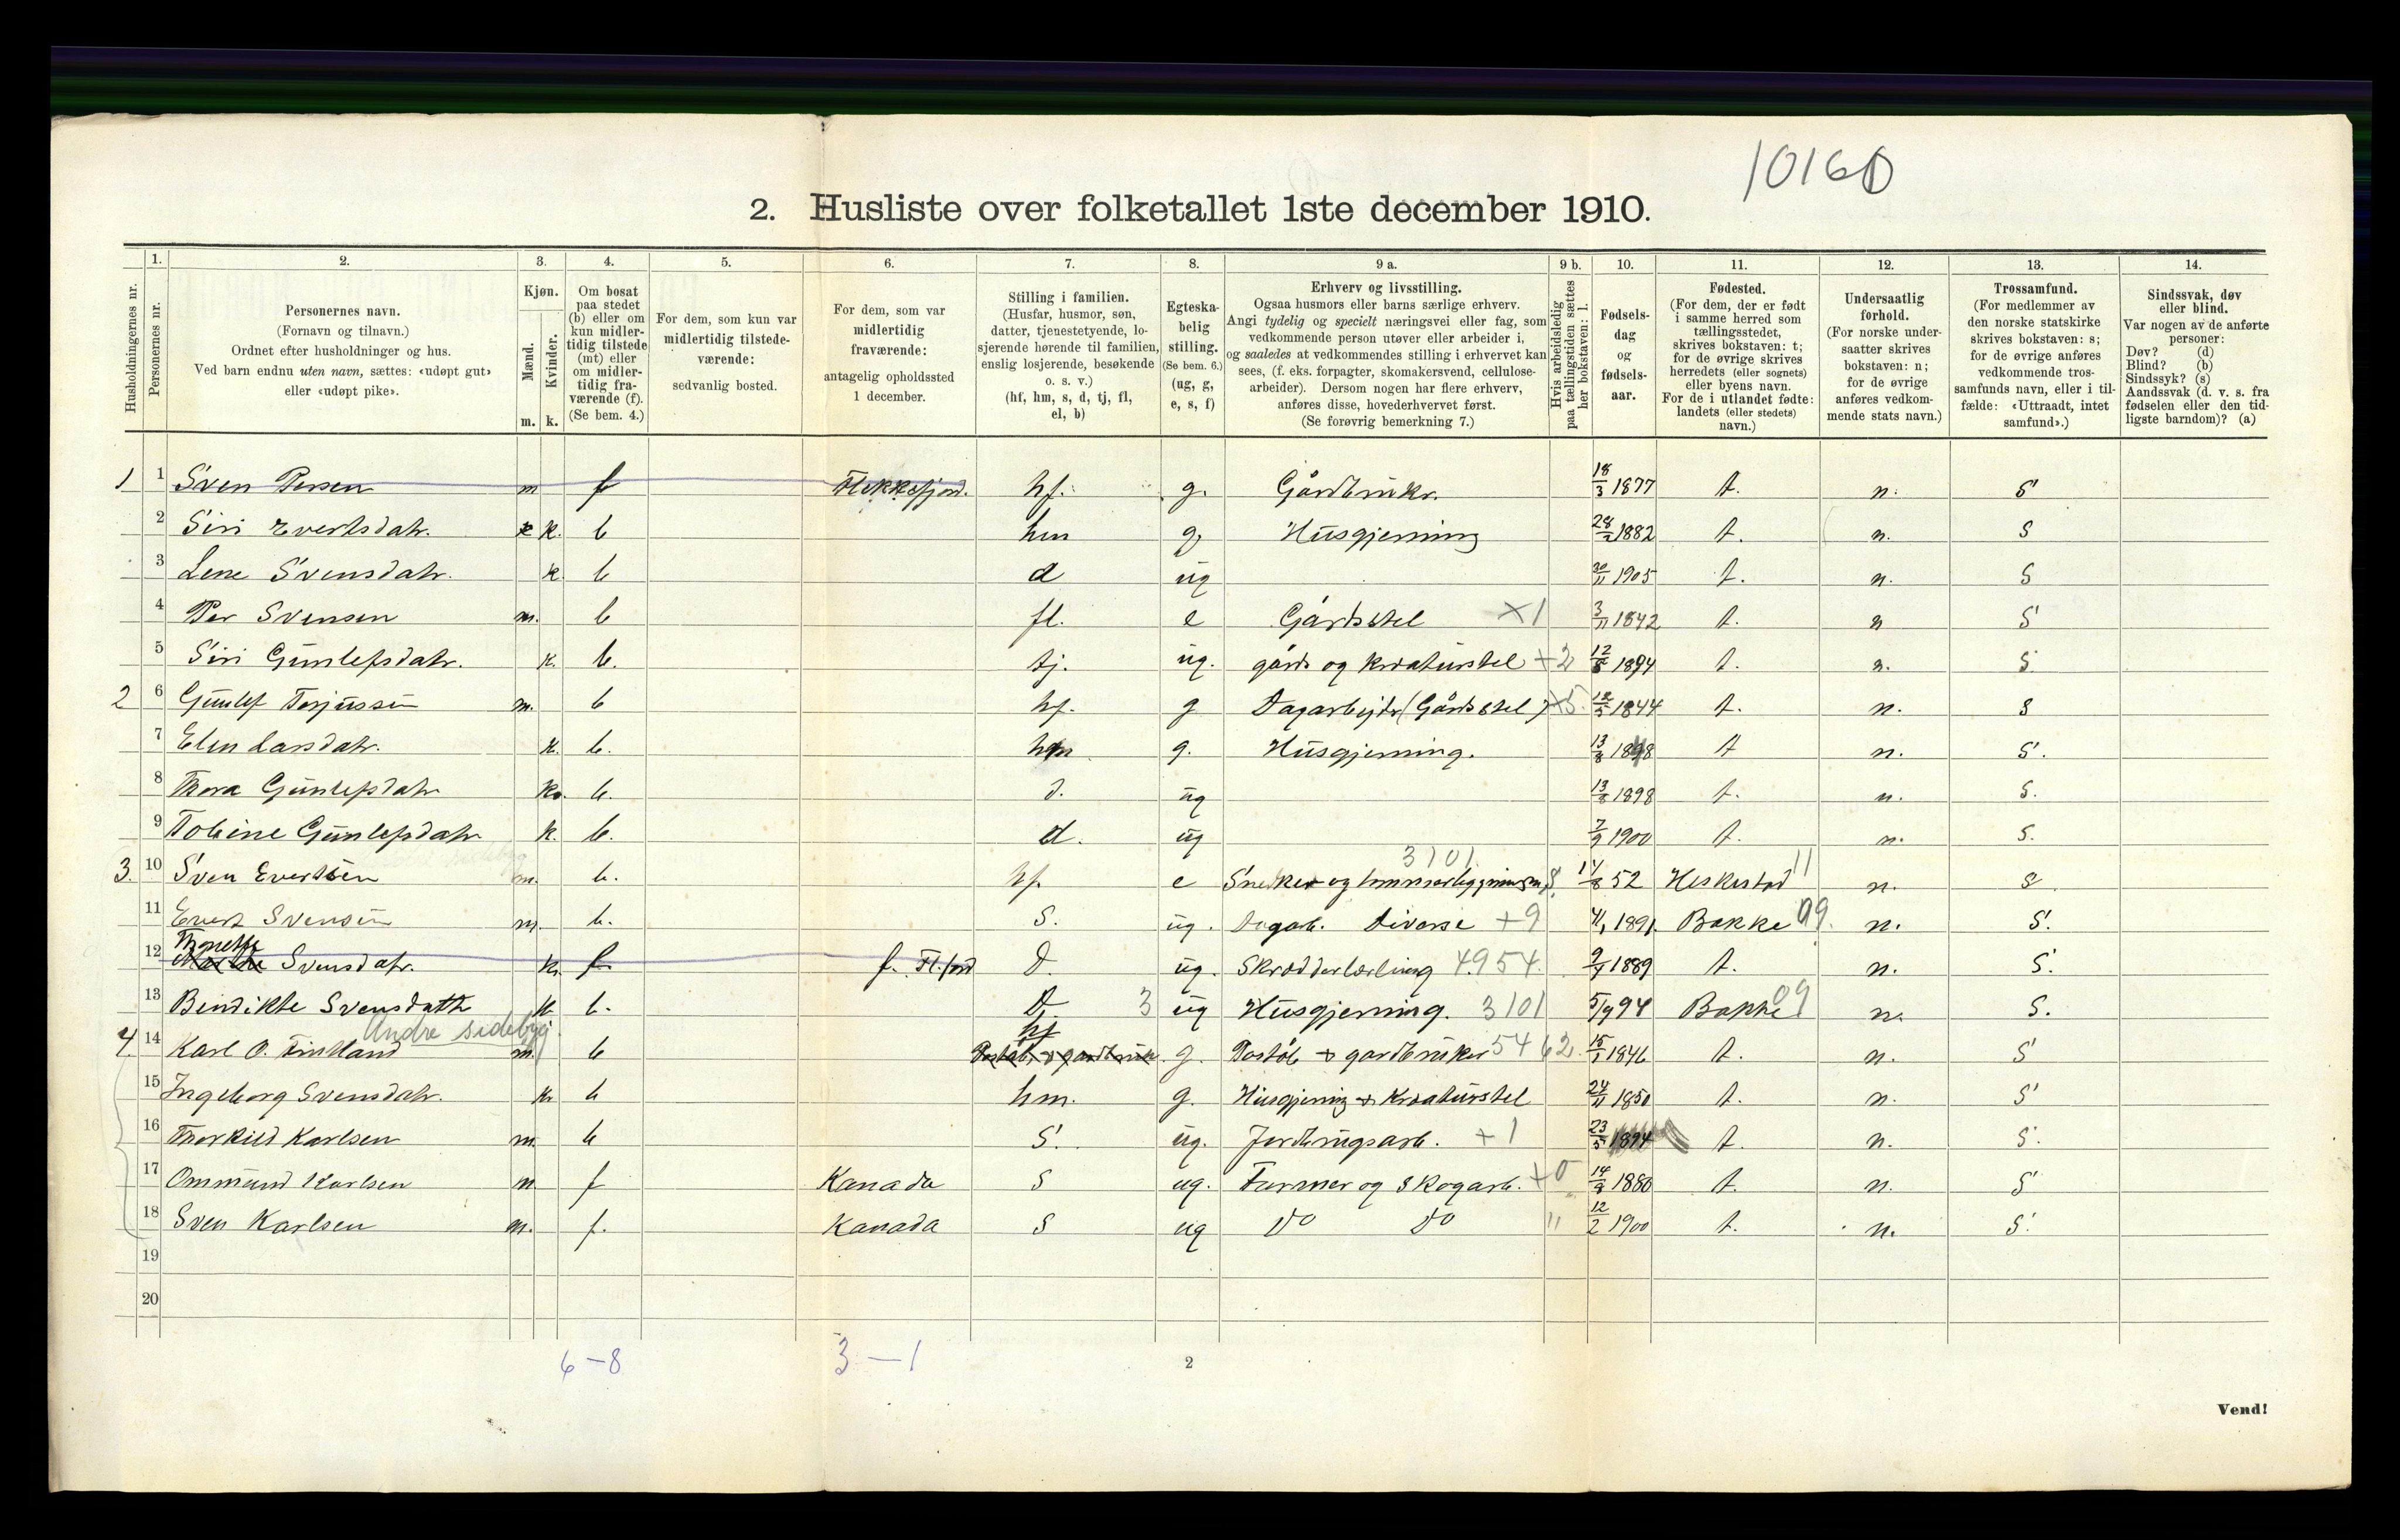 10160
2. Husliste over folketallet 1ste december 1910.
Husholdningernes nr.
1.
Personernes nr.
2.
Personernes navn.
(Fornavn og tilnavn.)
Ordnet efter husholdninger og hus.
Ved barn endnu uten navn, sættes: «udøpt gut»
eller «udøpt pike».
3.
Kjøn.
Mænd.
Kvinder.
m. k.
4.
Om bosat
paa stedet
(b) eller om
kun midler-
tidig tilstede
(mt) eller
om midler-
tidig fra-
værende (f).
(Se bem. 4.)
5.
For dem, som kun var
midlertidig tilstede-
værende:
sedvanlig bosted.
6.
For dem, som var
midlertidig
fraværende:
antagelig opholdssted
1 december.
7.
Stilling i familien.
(Husfar, husmor, søn,
datter, tjenestetyende, lo-
sjerende hørende til familien,
enslig losjerende, besøkende
o. s. v.)
(hf, hm, s, d, tj, fl,
el, b)
8.
Egteska-
belig
stilling.
(Se bem. 6.)
(ug, g,
e, s, f)
9 a.
Erhverv og livsstilling.
Ogsaa husmors eller barns særlige erhverv.
Angi tydelig og specielt næringsvei eller fag, som
vedkommende person utøver eller arbeider i,
og saaledes at vedkommendes stilling i erhvervet kan
sees, (f. eks. forpagter, skomakersvend, cellulose-
arbeider). Dersom nogen har flere erhverv,
anføres disse, hovederhvervet først.
(Se forøvrig bemerkning 7.)
9 b.
Hvis arbeidsledig
paa tællingstiden sættes
her bokstaven: l.
10.
Fødsels-
dag
og
fødsels-
aar.
11.
Fødested.
(For dem, der er født
i samme herred som
tællingsstedet,
skrives bokstaven: t;
for de øvrige skrives
herredets (eller sognets)
eller byens navn.
For de i utlandet fødte:
landets (eller stedets)
navn.)
12.
Undersaatlig
forhold.
(For norske under-
saatter skrives
bokstaven: n;
for de øvrige
anføres vedkom-
mende stats navn.)
13.
Trossamfund.
(For medlemmer av
den norske statskirke
skrives bokstaven: s;
for de øvrige anføres
vedkommende tros-
samfunds navn, eller i til-
fælde: «Uttraadt, intet
samfund».)
14.
Sindssvak, døv
eller blind.
Var nogen av de anførte
personer:
Døv? (d)
Blind? (b)
Sindssyk? (s)
Aandssvak (d. v. s. fra
fødselen eller den tid-
ligste barndom)? (a)
1 1 Sven Persen m f Flekkefjord. hf. g. Gårdbrukr. 18/3 1877 t. n. S
2 Siri Evertsdatr. k. b hm g. Husgjerning 28/2 1882 t. n. S
3 Lene Svensdatr. k. b d ug 30/11 1905 t. n. S
4 Per Svensen m. b fl. e Gårdsstel X1 3/11 1842 t. n S
5 Siri Gunlefsdatr. k. b. tj. ug. gårds og kreaturstel +2 12/8 1894 t. n. S
2 6 Gunlef Terjussen m. b hf. g Dagarbejdr (Gårdsstel) X5 12/5 1844 t. n. S
7 Elen Larsdatr. k. b. hm g. Husgjerning. 13/8 1848 t n. S.
8 Thora Gunlefsdatr k. b. d. ug 13/8 1898 t. n. S.
9 Tobine Gunlefsdatr k. b. d. ug 7/9 1900 t. n. S.
3101
3. 10 Sven Evertsen m. b. hf. e Snedker og 17/8 52 Heskestad 11 n. S
11 Evert Svensen m. b. S. ug. Dagarb. Diverse +9 4/1 1891 Bakke 09 n. S.
Thonette
12 Svensdatr. k. f f. Fl.fjord D. ug. Skrædderlærling 4954. 9/4 1889 t. n. S.
13 Bendikte Svensdattr k b. D. 3 ug Husgjerning. 3101 5/9 94 Bakke 09 n. S.
Andre side bygj.
hf
4. 14 Karl O. Fintland m. b Poståb. & gardbruk. g. Poståb & gardbruker 5462 15/1 1846 t. n. S
15 Ingeborg Svensdatr. k. b hm. g. Husgjerning & Kreaturstel 24/11 1850 t. n. S
16 Thorkild Karlsen m. b S. ug. Jordbrugsarb. +1 23/5 1894 t. n. S.
17 Ommund Karlsen m. f Kanada S ug. Farmer og Skogarb. +0 14/9 1880 t. n. S
18 Sven Karlsen m. f. Kanada S ug Do Do " 12/2 1900 t. n. S.
19
20
6-8 3-1 2
Vend!